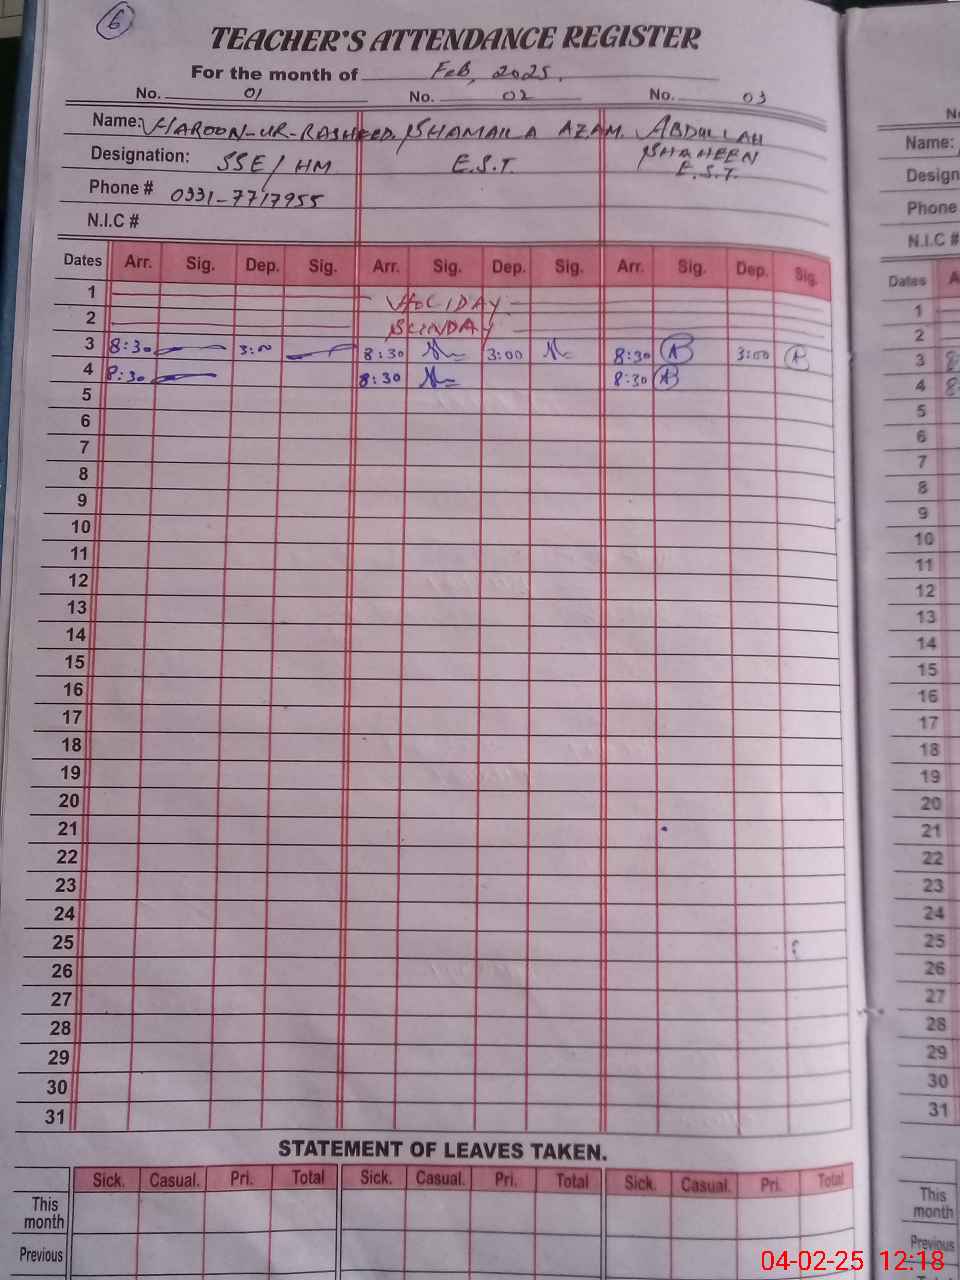 6
TEACHER'S ATTENDANCE REGISTER
For the month of Feb, 2025.
No. 01 No. 02 No. 03
Name: HAROON-UR-RASHEED. SHAMAILA AZAM. ABDULLAH SHAHEEN
Designation: SSE/HM E.S.T. E.S.T.
Phone # 0331-7717955
N.I.C #
Dates Arr. Sig. Dep. Sig. Arr. Sig. Dep. Sig. Arr. Sig. Dep. Sig.
1 HOLIDAY
2 SUNDAY
3 8:30 3:00 8:30 3:00 8:30 3:00
4 8:30 8:30 8:30
5
6
7
8
9
10
11
12
13
14
15
16
17
18
19
20
21
22
23
24
25
26
27
28
29
30
31
STATEMENT OF LEAVES TAKEN.
Sick. Casual. Pri. Total Sick. Casual. Pri. Total Sick. Casual. Pri. Total
This month
Previous
Name:
Design
Phone
N.I.C #
Dates A
1
2
3
4
5
6
7
8
9
10
11
12
13
14
15
16
17
18
19
20
21
22
23
24
25
26
27
28
29
30
31
This month
Previous
04-02-25 12:18